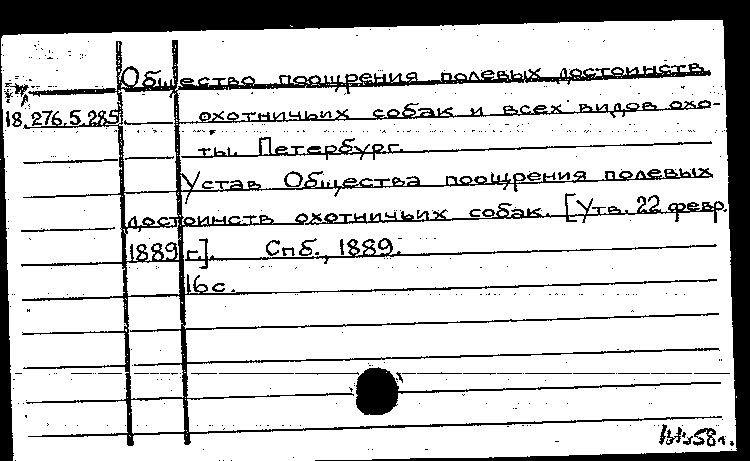 Общество поощрения полевых достоинств
18.276.5.285. охотничьих собак и всех видов охо-
ты. Петербург.
Устав Общества поощрения полевых
достоинств охотничьих собак. [Утв. 22 февр.
1889 г.]. Спб., 1889.
16 с.